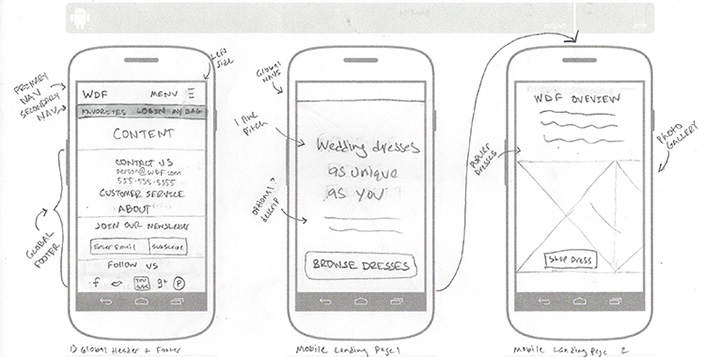 Left side
PRIMARY
NAV
SECONDARY
NAV
WDF MENU
FAVORITES LOGIN MY BAG
CONTENT
CONTACT US
person@WDF.com
555-555-5555
CUSTOMER SERVICE
ABOUT
JOIN OUR NEWSLETTER
Enter Email Subscribe
Follow US
f You Tube g+ P
GLOBAL
FOOTER
1) Global Header & Footer
Global
NAVS
1 line
Pitch
Wedding dresses
as unique
as you
optional?
descrip
BROWSE DRESSES
Mobile Landing Page 1
WDF OVEVIEW
POPULER
DRESSES
PHOTO
GALLERY
Shop Dress
Mobile Landing Page 2